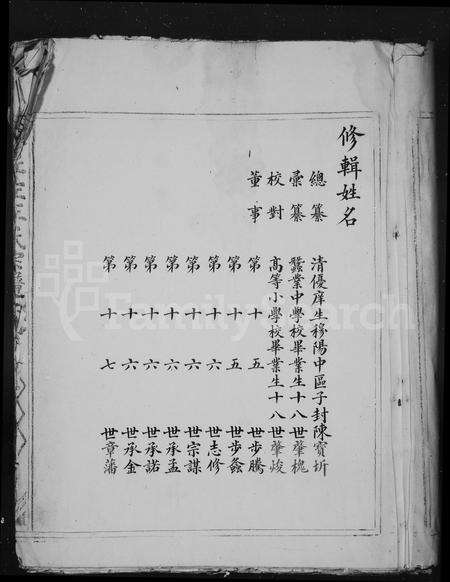 修輯姓名
總纂 清優庠生穆陽中區子封陳寶圻
彙纂 蠶業中學校畢業生十八世肇槐
校對 高等小學校畢業生十八世肇峻
董事 第十五世步騰
第十五世步螽
第十六世志修
第十六世宗謀
第十六世承孟
第十六世承諾
第十六世承金
第十七世章藩
FamilySearch